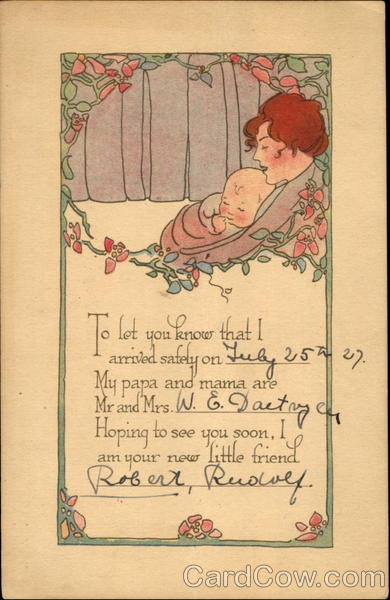 To let you know that I
arrived safely on July 25th 27.
My papa and mama are
Mr and Mrs. W. E.
Hoping to see you soon, I
am your new little friend
Robert, Rudolf.
CardCow.com